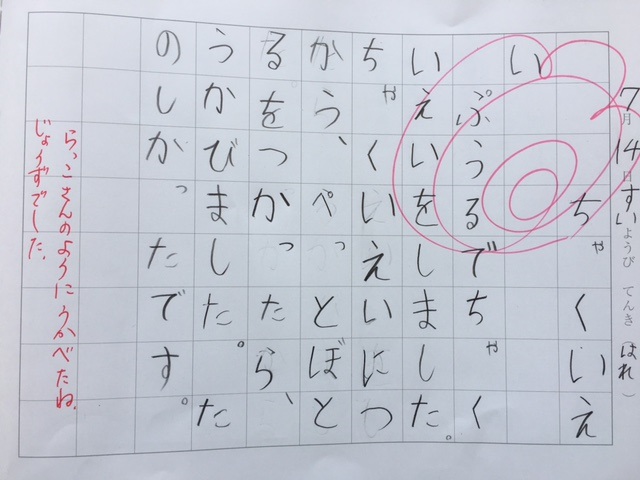 7月14日すいようび てんき(はれ)
ちゃくいえ
い
ぷうるでちゃく
いえいをしました。
ちゃくいえいにつ
かう、ぺっとぼと
るをつかったら、
うかびました。た
のしかったです。
らっこさんのようにうかべたね。
じょうずでした。